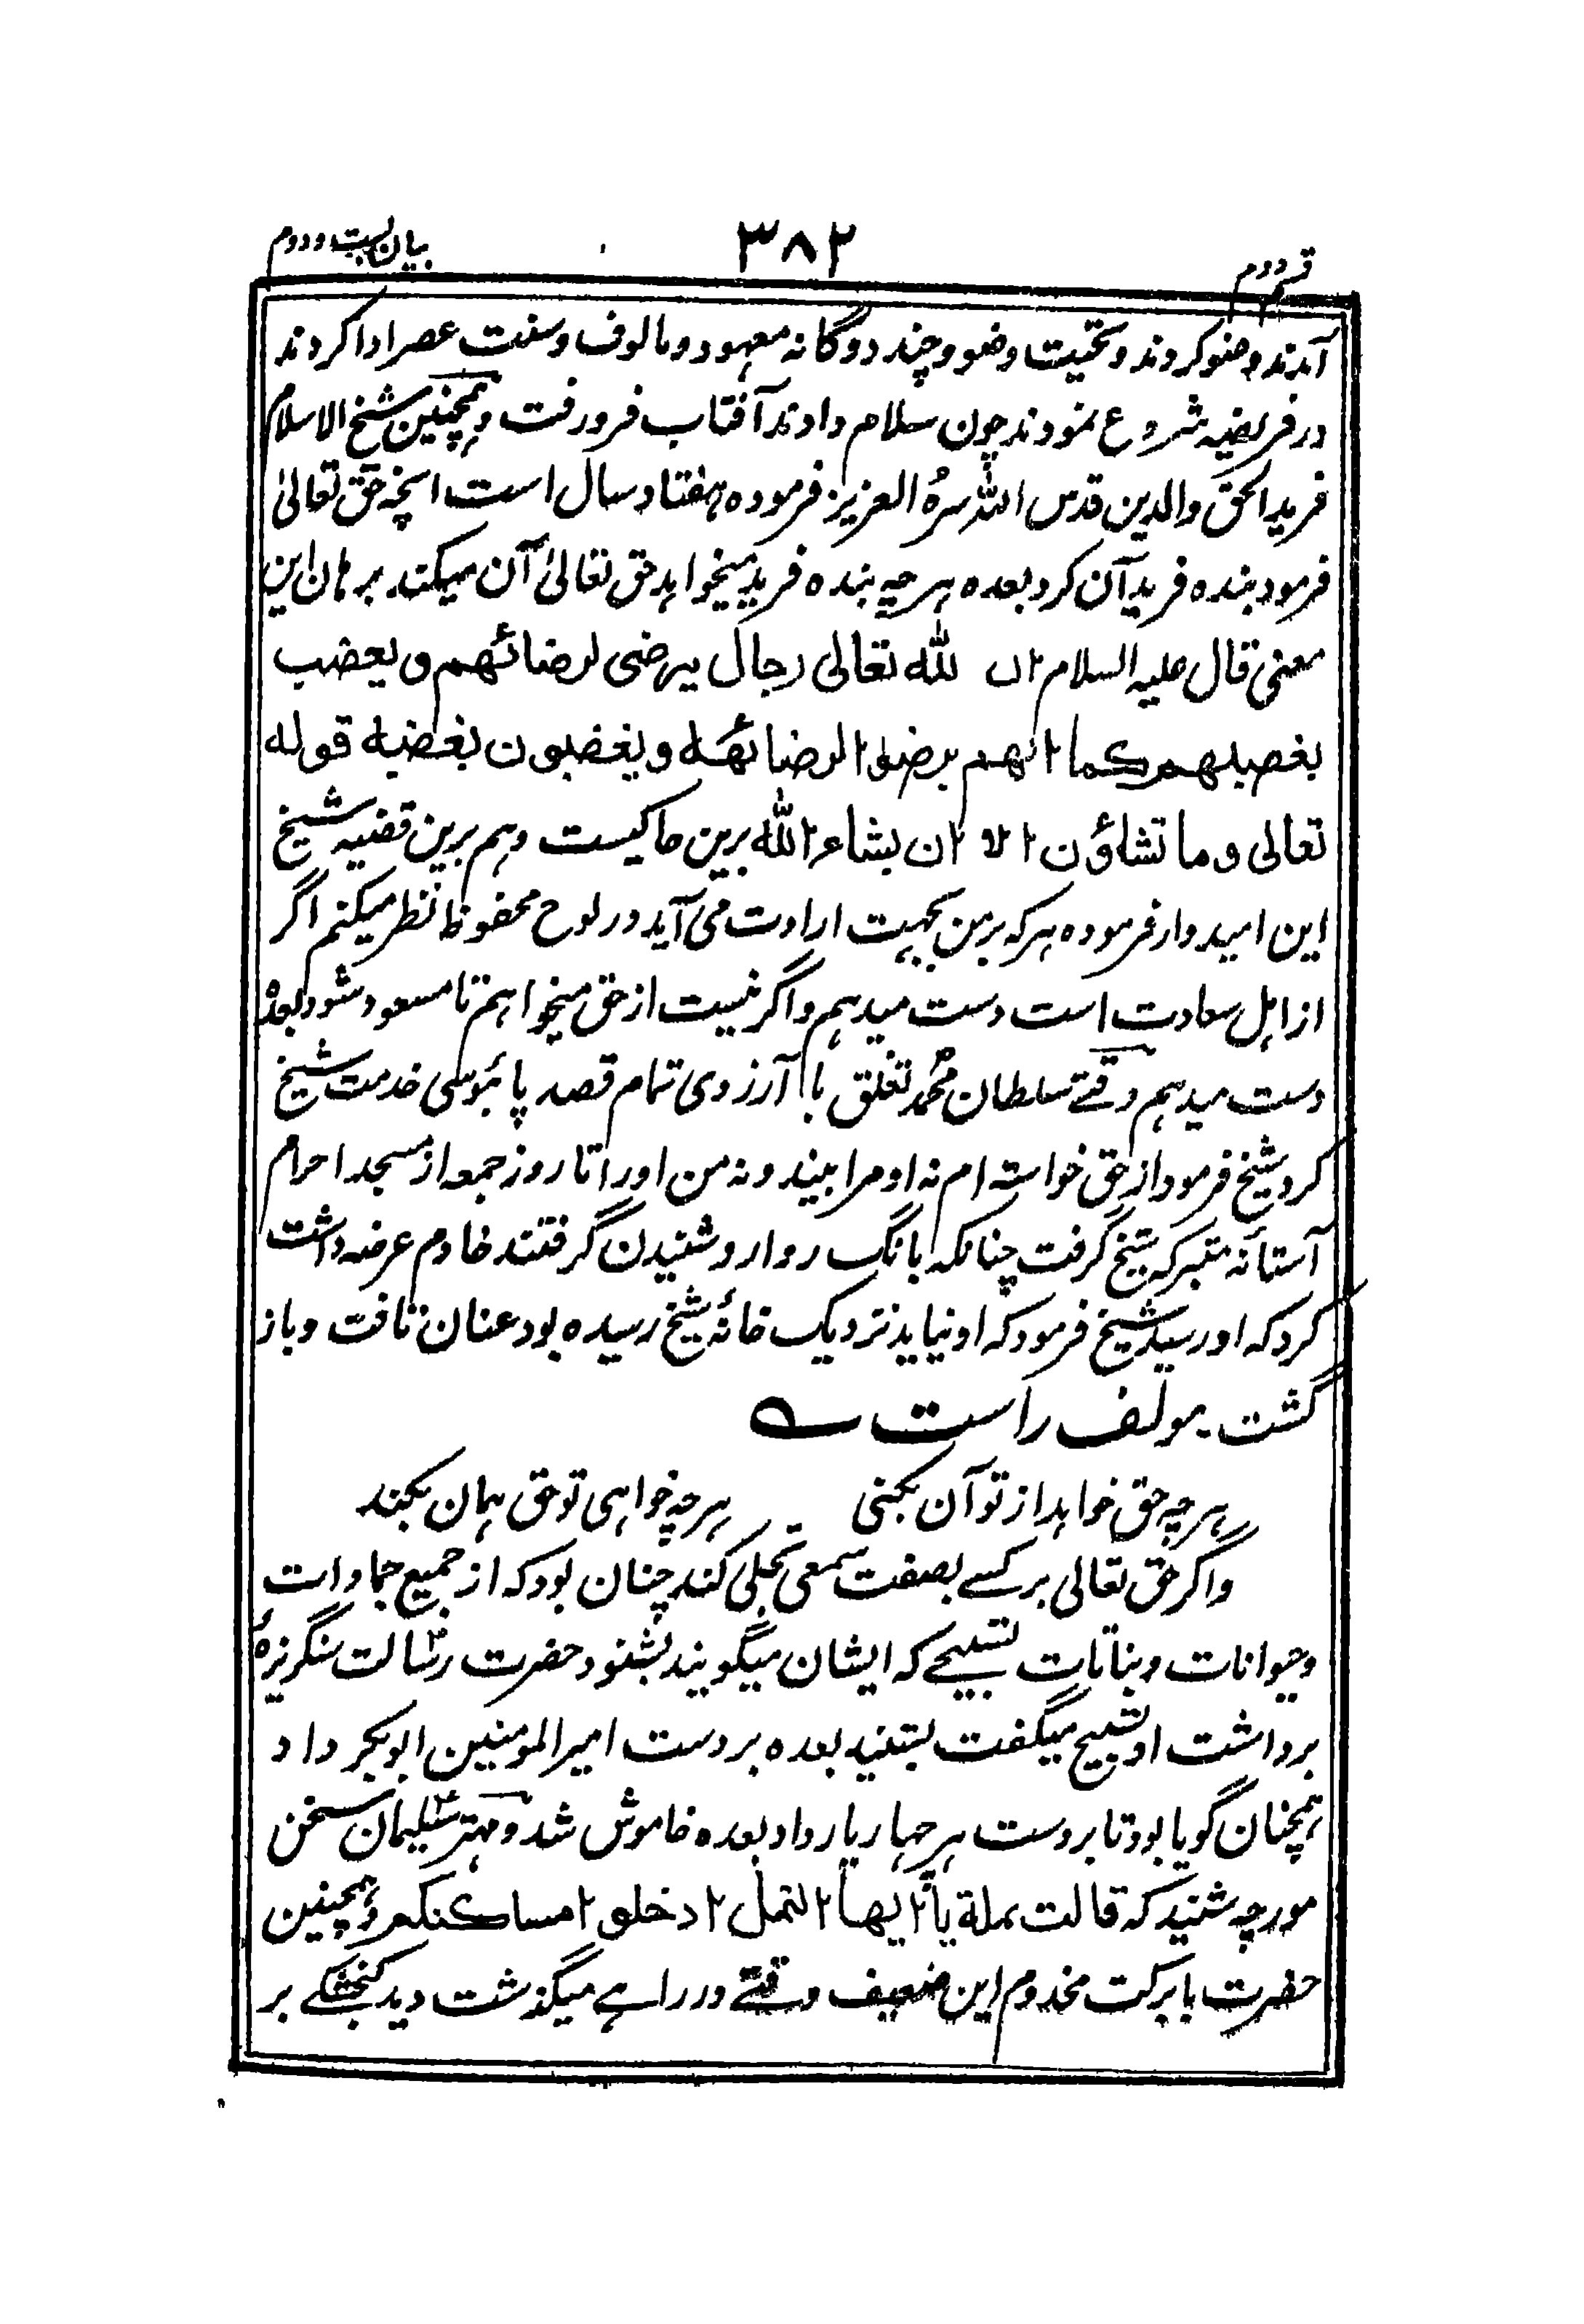 قسم دوم
۳۸۲
بیان بست و دوم
آمدند و وضو کردند و تحیت وضو و چند دوگانه معهود و مالوف و سنت عصر ادا کردند
در فریضه شروع نمودند چون سلام دادند آفتاب فرو رفت و همچنین شیخ الاسلام
فرید الحق والدین قدس الله سرهُ العزیز فرموده هفتاد سال است انچه حق تعالیٰ
فرمود بنده فرید آن کرد بعده هر چه بنده فرید میخواهد حق تعالیٰ آن میکند برهان این
معنی قال علیه السلام ان لله تعالی رجال یرضی لرضائهم و یغضب
بغضبهم کما انهم یرضوا لرضائه و یغضبون بغضبه قوله
تعالی و ما تشاؤن الا ان یشاء الله برین حاکیست و هم برین قضیه شیخ
این امیدوار فرموده هر که بر من بجهت ارادت می آید در لوح محفوظ نظر میکنم اگر
از اهل سعادت است دست میدهم و اگر نیست از حق میخواهم تا مسعود شود بعدهٗ
دست میدهم وقتے سلطان محمد تغلق با آرزوی تمام قصد پائبوسی خدمت شیخ
کرد شیخ فرمود از حق خواسته ام نه او مرا بیند و نه من او را تا روز جمعه از مسجد احرام
آستانهٔ متبرکه شیخ گرفت چنانکه بانگ روارو شنیدن گرفتند خادم عرضه داشت
کرد که او رسید شیخ فرمود که او نیاید نزدیک خانهٔ شیخ رسیده بود عنان تافت و باز
گشت۔ مولف راست ؎
هر چه حق خواهد از تو آن بکنی هر چه خواهی تو حق همان بکند
و اگر حق تعالی بر کسے بصفت سمعی تجلی کند چنان بود که از جمیع جمادات
و حیوانات و نباتات تسبیحے که ایشان میگویند بشنود حضرت رسالت سنگریزهٔ
برداشت او تسبیح میگفت بشنید بعده بر دست امیرالمومنین ابوبکر داد
همچنان گویا بود تا بر دست هر چهار یار داد بعده خاموش شد و مهتر سلیمان سخن
مورچه شنید که قالت نملة یاایها النمل ادخلوا مساکنکم و همچنین
حضرت با برکت مخدوم این ضعیف وقتے در راهے میگذشت دید کنجشکے بر